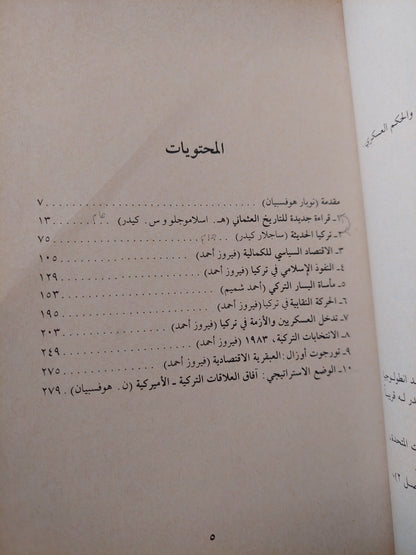 المحتويات
مقدمة (نوبار هوفسبيان) ٧
١ـ قراءة جديدة للتاريخ العثماني (هـ. اسلاموجلو و س. كيدر) ١٣
٢ـ تركيا الحديثة (ساجلار كيدر) ٧٥
٣ـ الاقتصاد السياسي للكمالية (فيروز أحمد) ١٠٥
٤ـ النفوذ الإسلامي في تركيا (فيروز أحمد) ١٢٩
٥ـ مأساة اليسار التركي (أحمد شميم) ١٥٣
٦ـ الحركة النقابية في تركيا (فيروز أحمد) ١٩٥
٧ـ تدخل العسكريين والأزمة في تركيا (فيروز أحمد) ٢٠٣
٨ـ الانتخابات التركية، ١٩٨٣ (فيروز أحمد) ٢٤٩
٩ـ تورجوت أوزال: العبقرية الاقتصادية (فيروز أحمد) ٢٧٥
١٠ـ الوضع الاستراتيجي: آفاق العلاقات التركية ـ الأميركية (ن. هوفسبيان) . ٢٧٩
٥
والحكم العسكري
ت المتحدة،
صل ٢)،